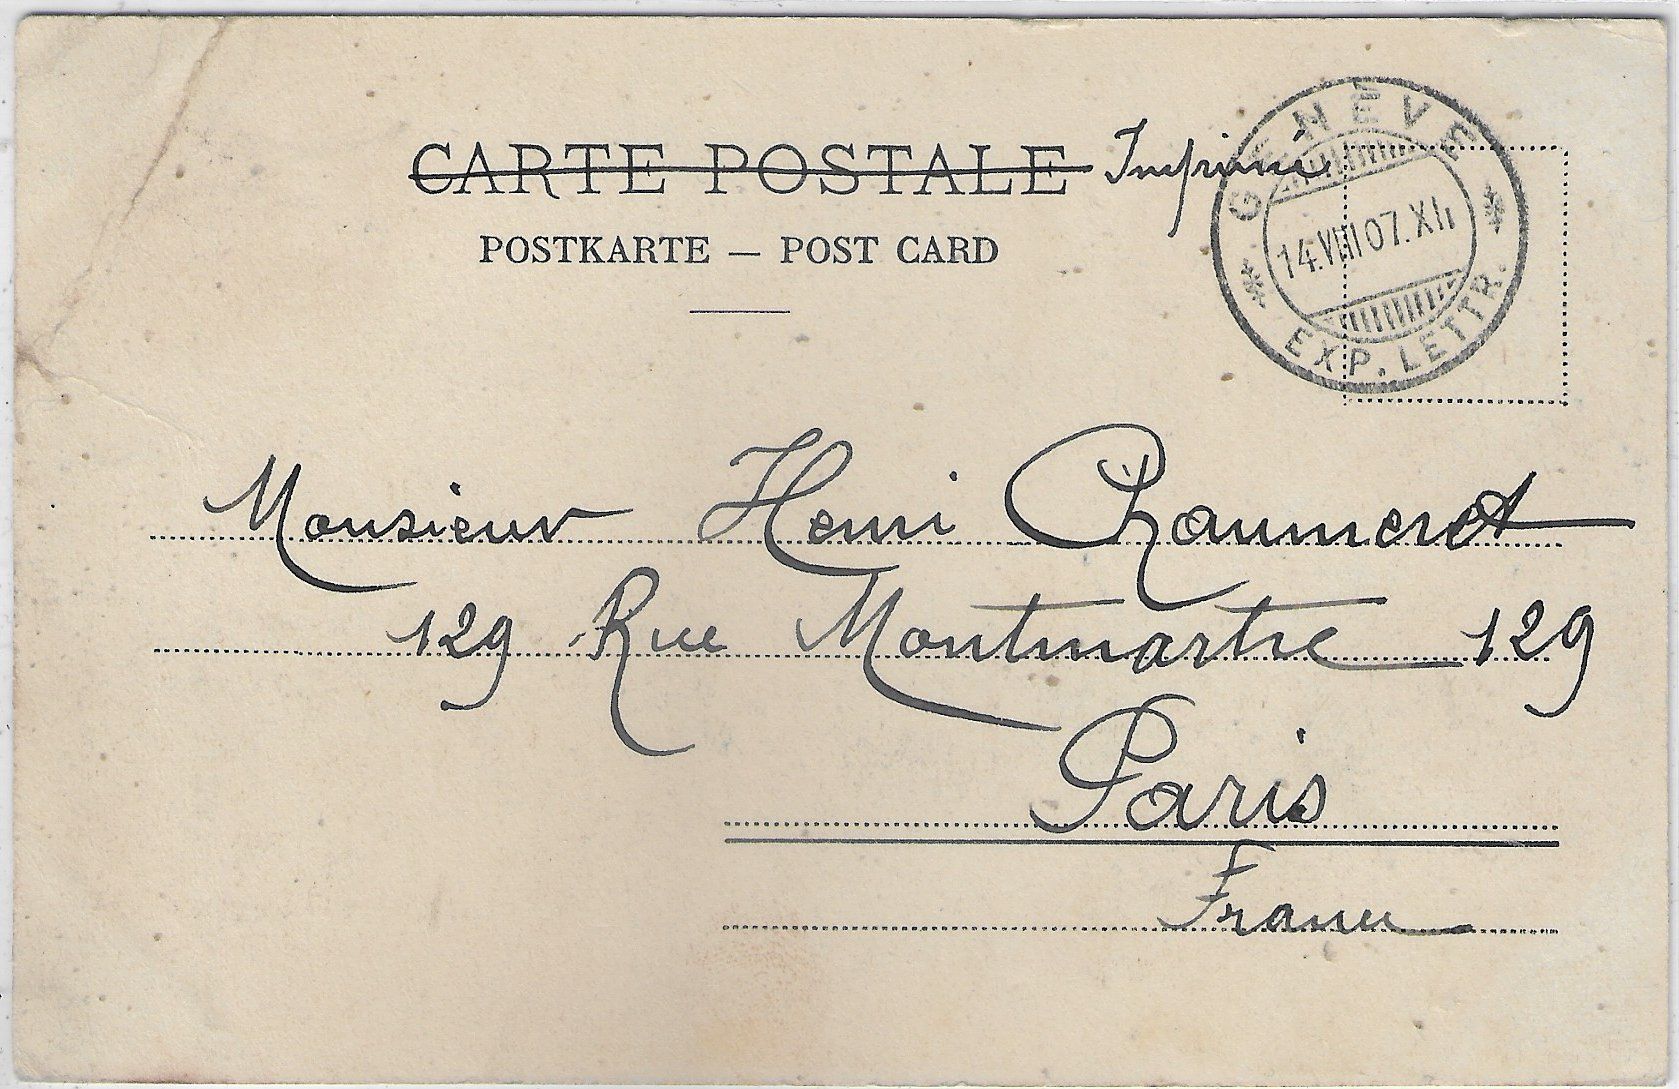 CARTE POSTALE Imprimé
POSTKARTE — POST CARD
GENÈVE
14.VIII 07.XII
EXP. LETTR.
Monsieur Henri Chaumerot
129 Rue Montmartre 129
Paris
France